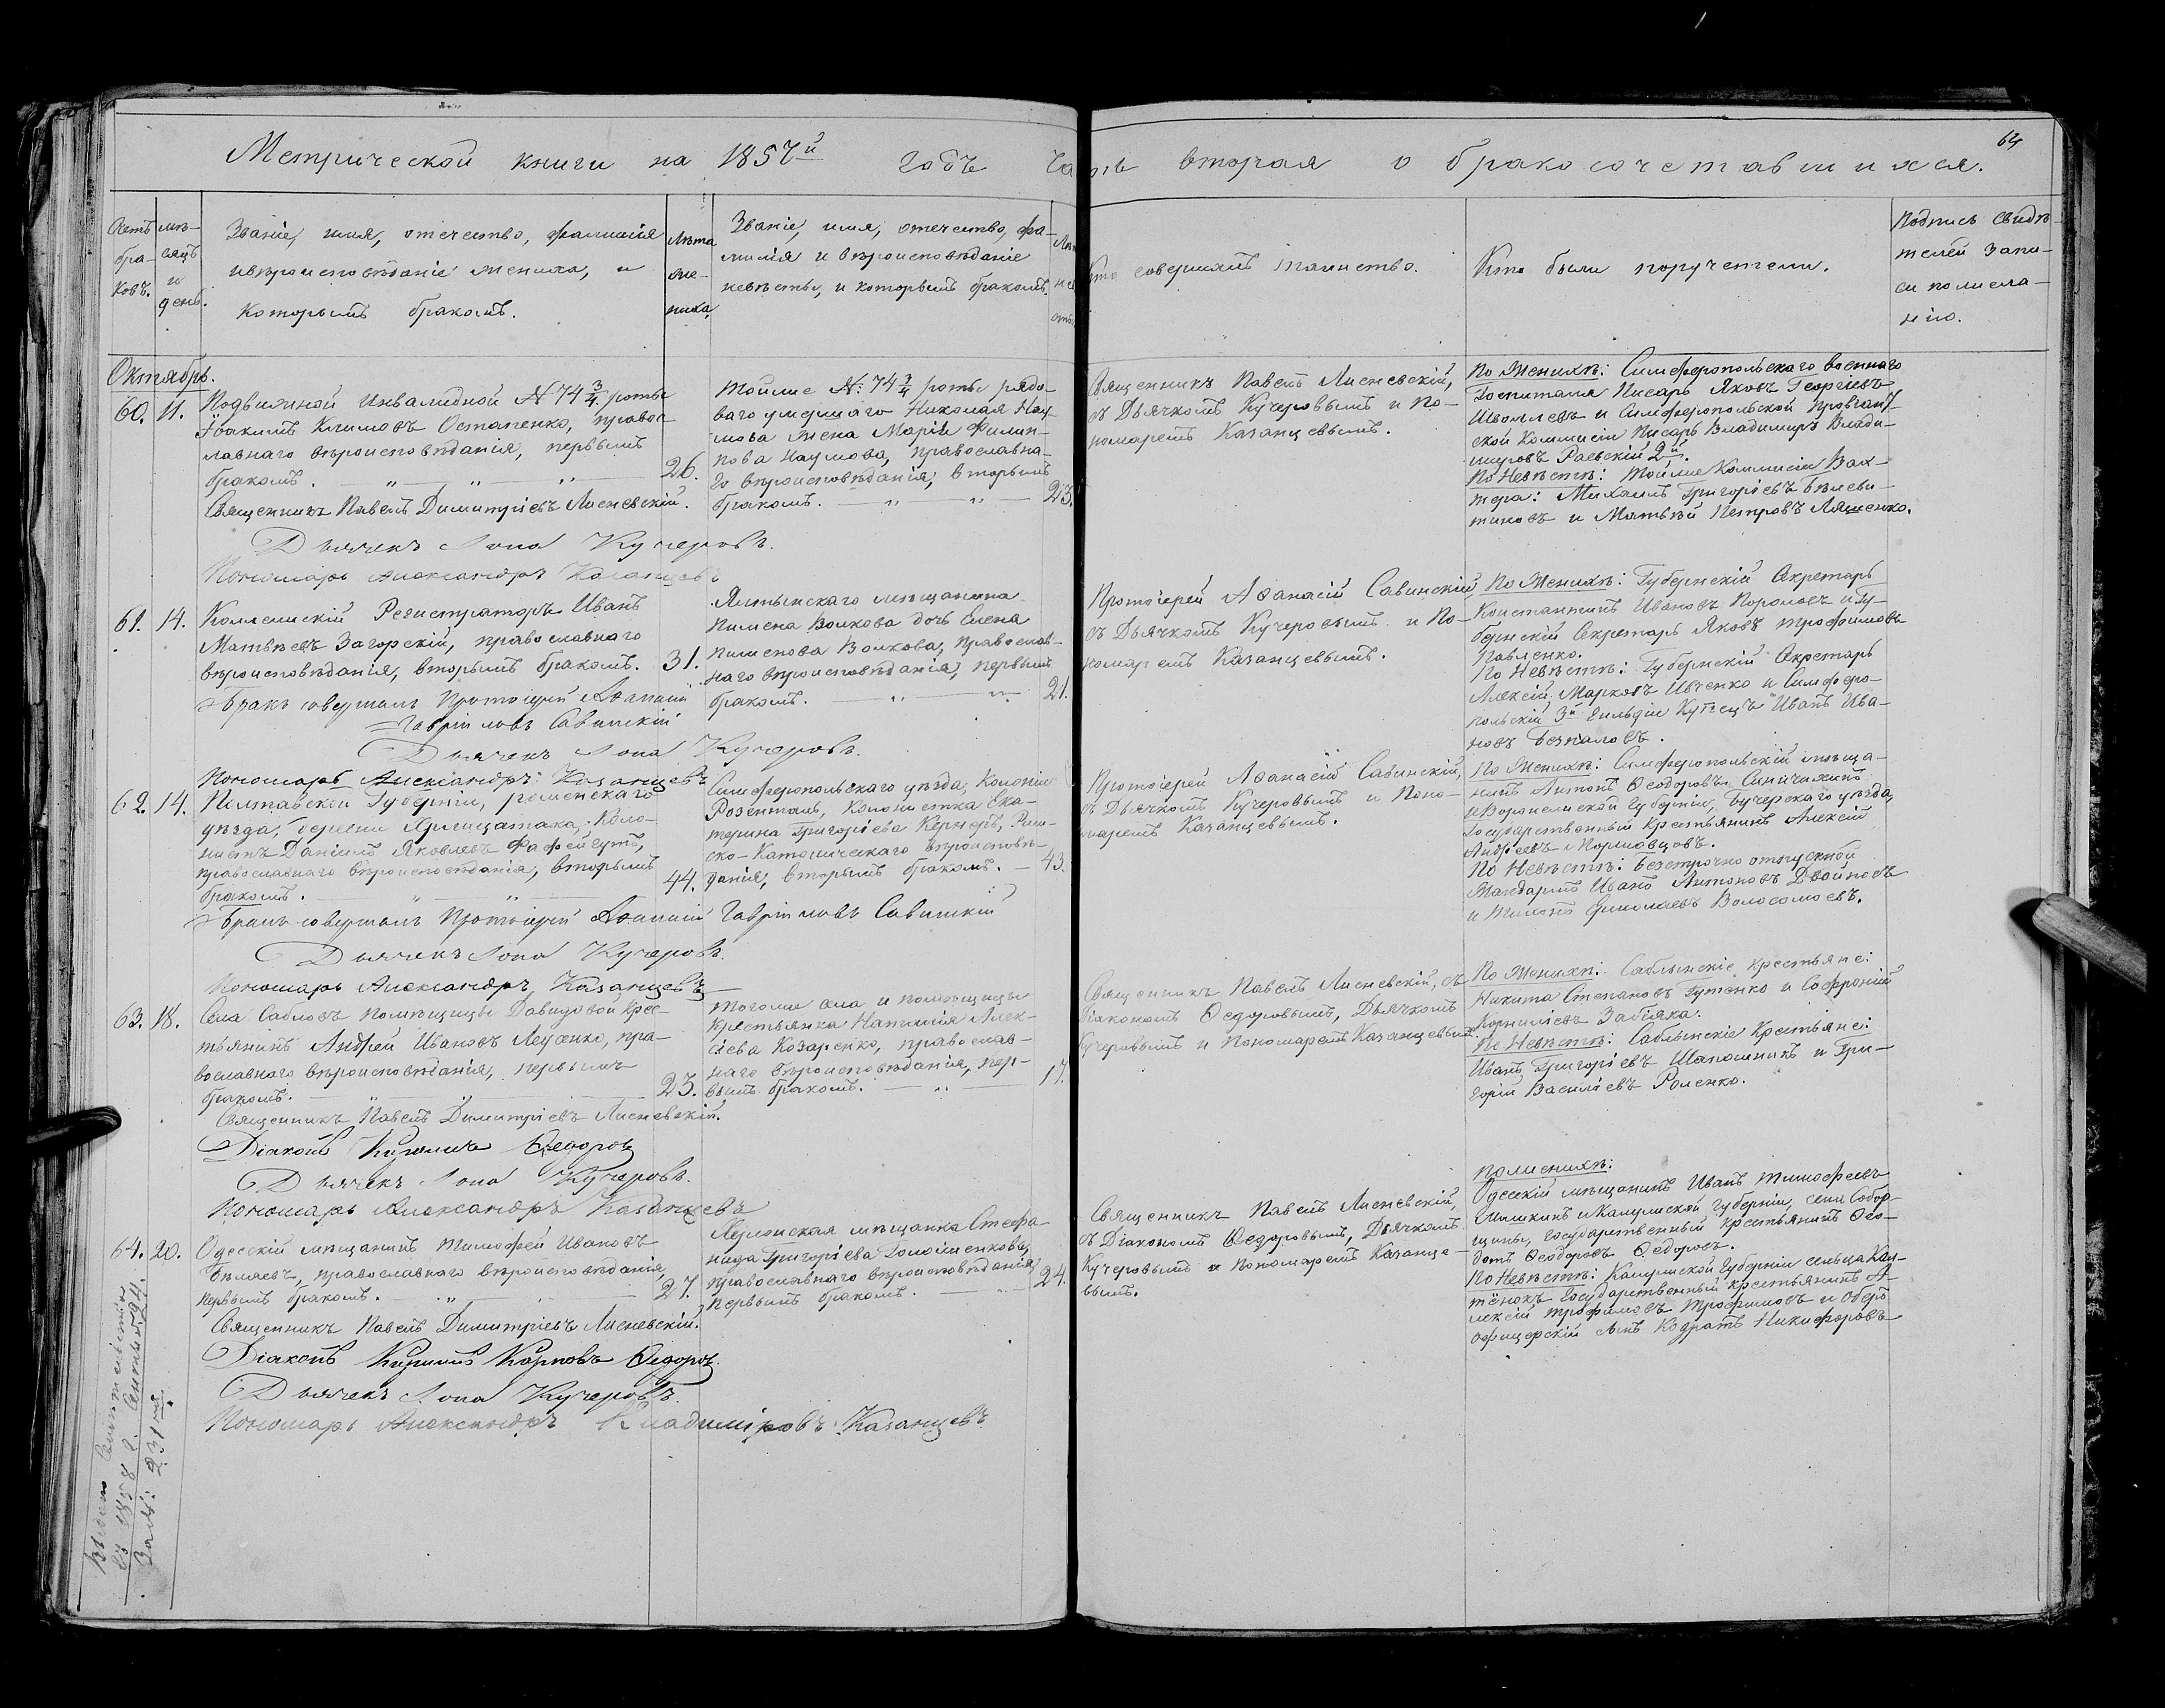 64
Метрической книги на 1857й годъ Ча сть вторая о бракосочетавшихся.
Счетъ бра-
ковъ.
мѣ-
сяцъ
и
день.
Званіе, имя, отечество, фамилія
и вѣроисповѣданіе жениха, и
которымъ бракомъ.
Лѣта
же-
ниха.
Званіе, имя, отечество, фа-
милія и вѣроисповѣданіе
невѣсты, и которымъ бракомъ.
Кто совершалъ таинство.
Кто были поручители.
Подпись свидѣ-
телей запи-
си по жела-
нію.
Октябрь.
60. 11.
Подвижной инвалидной №74 3/4 роты
Іоакимъ Климовъ Остапенко, правос-
лавнаго вѣроисповѣданія, первымъ
бракомъ. 26.
Тойже №: 74 3/4 роты рядо-
ваго умершаго Николая Нау-
мова жена Марія Филип-
пова Наумова, православна-
го вѣроисповѣданія; вторымъ
бракомъ. 23.
Священникъ Павелъ Лисневскій,
съ Дьячкомъ Кучеровымъ и По-
номаремъ Казанцевымъ.
По Женихѣ: Симферопольскаго военнаго
Госпиталя Писарь Яковъ Георгіевъ
и Симферопольской провіант-
ской Коммисіи Писарь Владимиръ Влади-
мировъ Раевскій 2й.
По Невѣстѣ: Тойже Коммисіи Вах-
тера: Михаилъ Григорьевъ
и Матвѣй Петровъ Ляшенко.
Священникъ Павелъ Димитріевъ Лисневскій.
Дьячекъ Іона Кучеровъ.
Пономарь Александръ Казанцевъ
61. 14.
Коллежскій Регистраторъ Иванъ
Матвѣевъ Загорскій, православнаго
вѣроисповѣданія, вторымъ бракомъ. 31.
Ялтынскаго мѣщанина
Пимена Волкова дочь Елена
Пименова Волкова, православ-
наго вѣроисповѣданія, первымъ
бракомъ. 21.
Протоіерей Аѳанасій Савинскій
съ Дьячкомъ Кучеровымъ и По-
номаремъ Казанцевымъ.
По Женихѣ: Губернскій Секретарь
Константинъ Ивановъ и Гу-
бернскій Секретарь Яковъ Трофимовъ
Павленко.
По Невѣстѣ: Губернскій Секретарь
Алексій Марковъ Ивченко и Симферо-
польскій 3й Гильдіи Купецъ Иванъ Ива-
новъ Безпаловъ.
Бракъ совершалъ Протоіерей Аѳанасій
Гавріиловъ Савинскій
Дьячекъ Іона Кучеровъ.
Пономарь Александръ Казанцевъ
62. 14.
Полтавской Губерніи, роменскаго
уѣзда, Коло-
нистъ Даніилъ Яковлевъ
православнаго вѣроисповѣданія, вторымъ
бракомъ. 44.
Симферопольскаго уѣзда, Колоніи
Розенталь, Колонистка Ека-
терина Григорьева Кернеръ, Рим-
ско-Католическаго вѣроисповѣ-
данія, вторымъ бракомъ. 43.
Протоіерей Аѳанасій Савинскій,
съ Дьячкомъ Кучеровымъ и Поно-
маремъ Казанцевымъ.
По Женихѣ: Симферопольскій мѣща-
нинъ Антонъ Ѳеодоровъ
и Воронежской Губерніи, уѣзда,
Государственный крестьянинъ Алексій
Андреевъ
По Невѣстѣ: Безсрочно отпускной
Жандармъ Иванъ Антоновъ Двойновъ
и Николаевъ
Бракъ совершалъ Протоіерей Аѳанасій Гавріиловъ Савинскій
Дьячекъ Іона Кучеровъ.
Пономарь Александръ Казанцевъ
63. 18.
Села Сабловъ помѣщицы Давидовой крес-
тьянинъ Андрей Ивановъ Леуженко, пра-
вославнаго вѣроисповѣданія, первымъ
бракомъ. 23.
Тогоже села и помѣщицы
крестьянка Наталія Алек-
сіева Козаренко, православ-
наго вѣроисповѣданія, пер-
вымъ бракомъ. 17.
Священникъ Павелъ Лисневскій, съ
Діакономъ Ѳедоровымъ, Дьячкомъ
Кучеровымъ и Пономаремъ Казанцевымъ.
По Женихѣ: Саблынскіе крестьяне:
Никита Степановъ Гутенко и Софроній
Корниліевъ Забіяка.
По Невѣстѣ: Саблынскіе Крестьяне:
Иванъ Григорьевъ Шапошникъ и Гри-
горій Васильевъ Роленко.
Священникъ Павелъ Димитріевъ Лисневскій.
Діаконъ Кириллъ Ѳедоровъ
Дьячекъ Іона Кучеровъ.
Пономарь Александръ Казанцевъ
64. 20.
Одесскій мѣщанинъ Тимофей Ивановъ
Бѣляевъ, православнаго вѣроисповѣданія,
первымъ бракомъ. 27.
Херсонская мѣщанка Стефа-
нида Григорьева Голошенкова,
православнаго вѣроисповѣданія,
первымъ бракомъ. 24.
Священникъ Павелъ Лисневскій,
съ Діакономъ Ѳедоровымъ, Дьячкомъ
Кучеровымъ и Пономаремъ Казанце-
вымъ.
По женихѣ:
Одесскій мѣщанинъ Иванъ Тимофеевъ
Мишкинъ и Калужской Губерніи, села Собор-
щины, Государственный крестьянинъ Ѳео-
дотъ Ѳеодоровъ Ѳедоровъ.
По Невѣстѣ: Калужской Губерніи сельца
Государственный крестьянинъ А-
лексій Трофимовъ Трофимовъ и Оберъ
офицерскій сынъ Кодратъ Никифоровъ
Священникъ Павелъ Димитріевъ Лисневскій.
Діаконъ Кириллъ Карповъ Ѳедоровъ.
Дьячекъ Іона Кучеровъ.
Пономарь Александръ Владиміровъ Казанцевъ
Выдано Свидѣтельство
1858 г. Сентября 24.
За №: 231